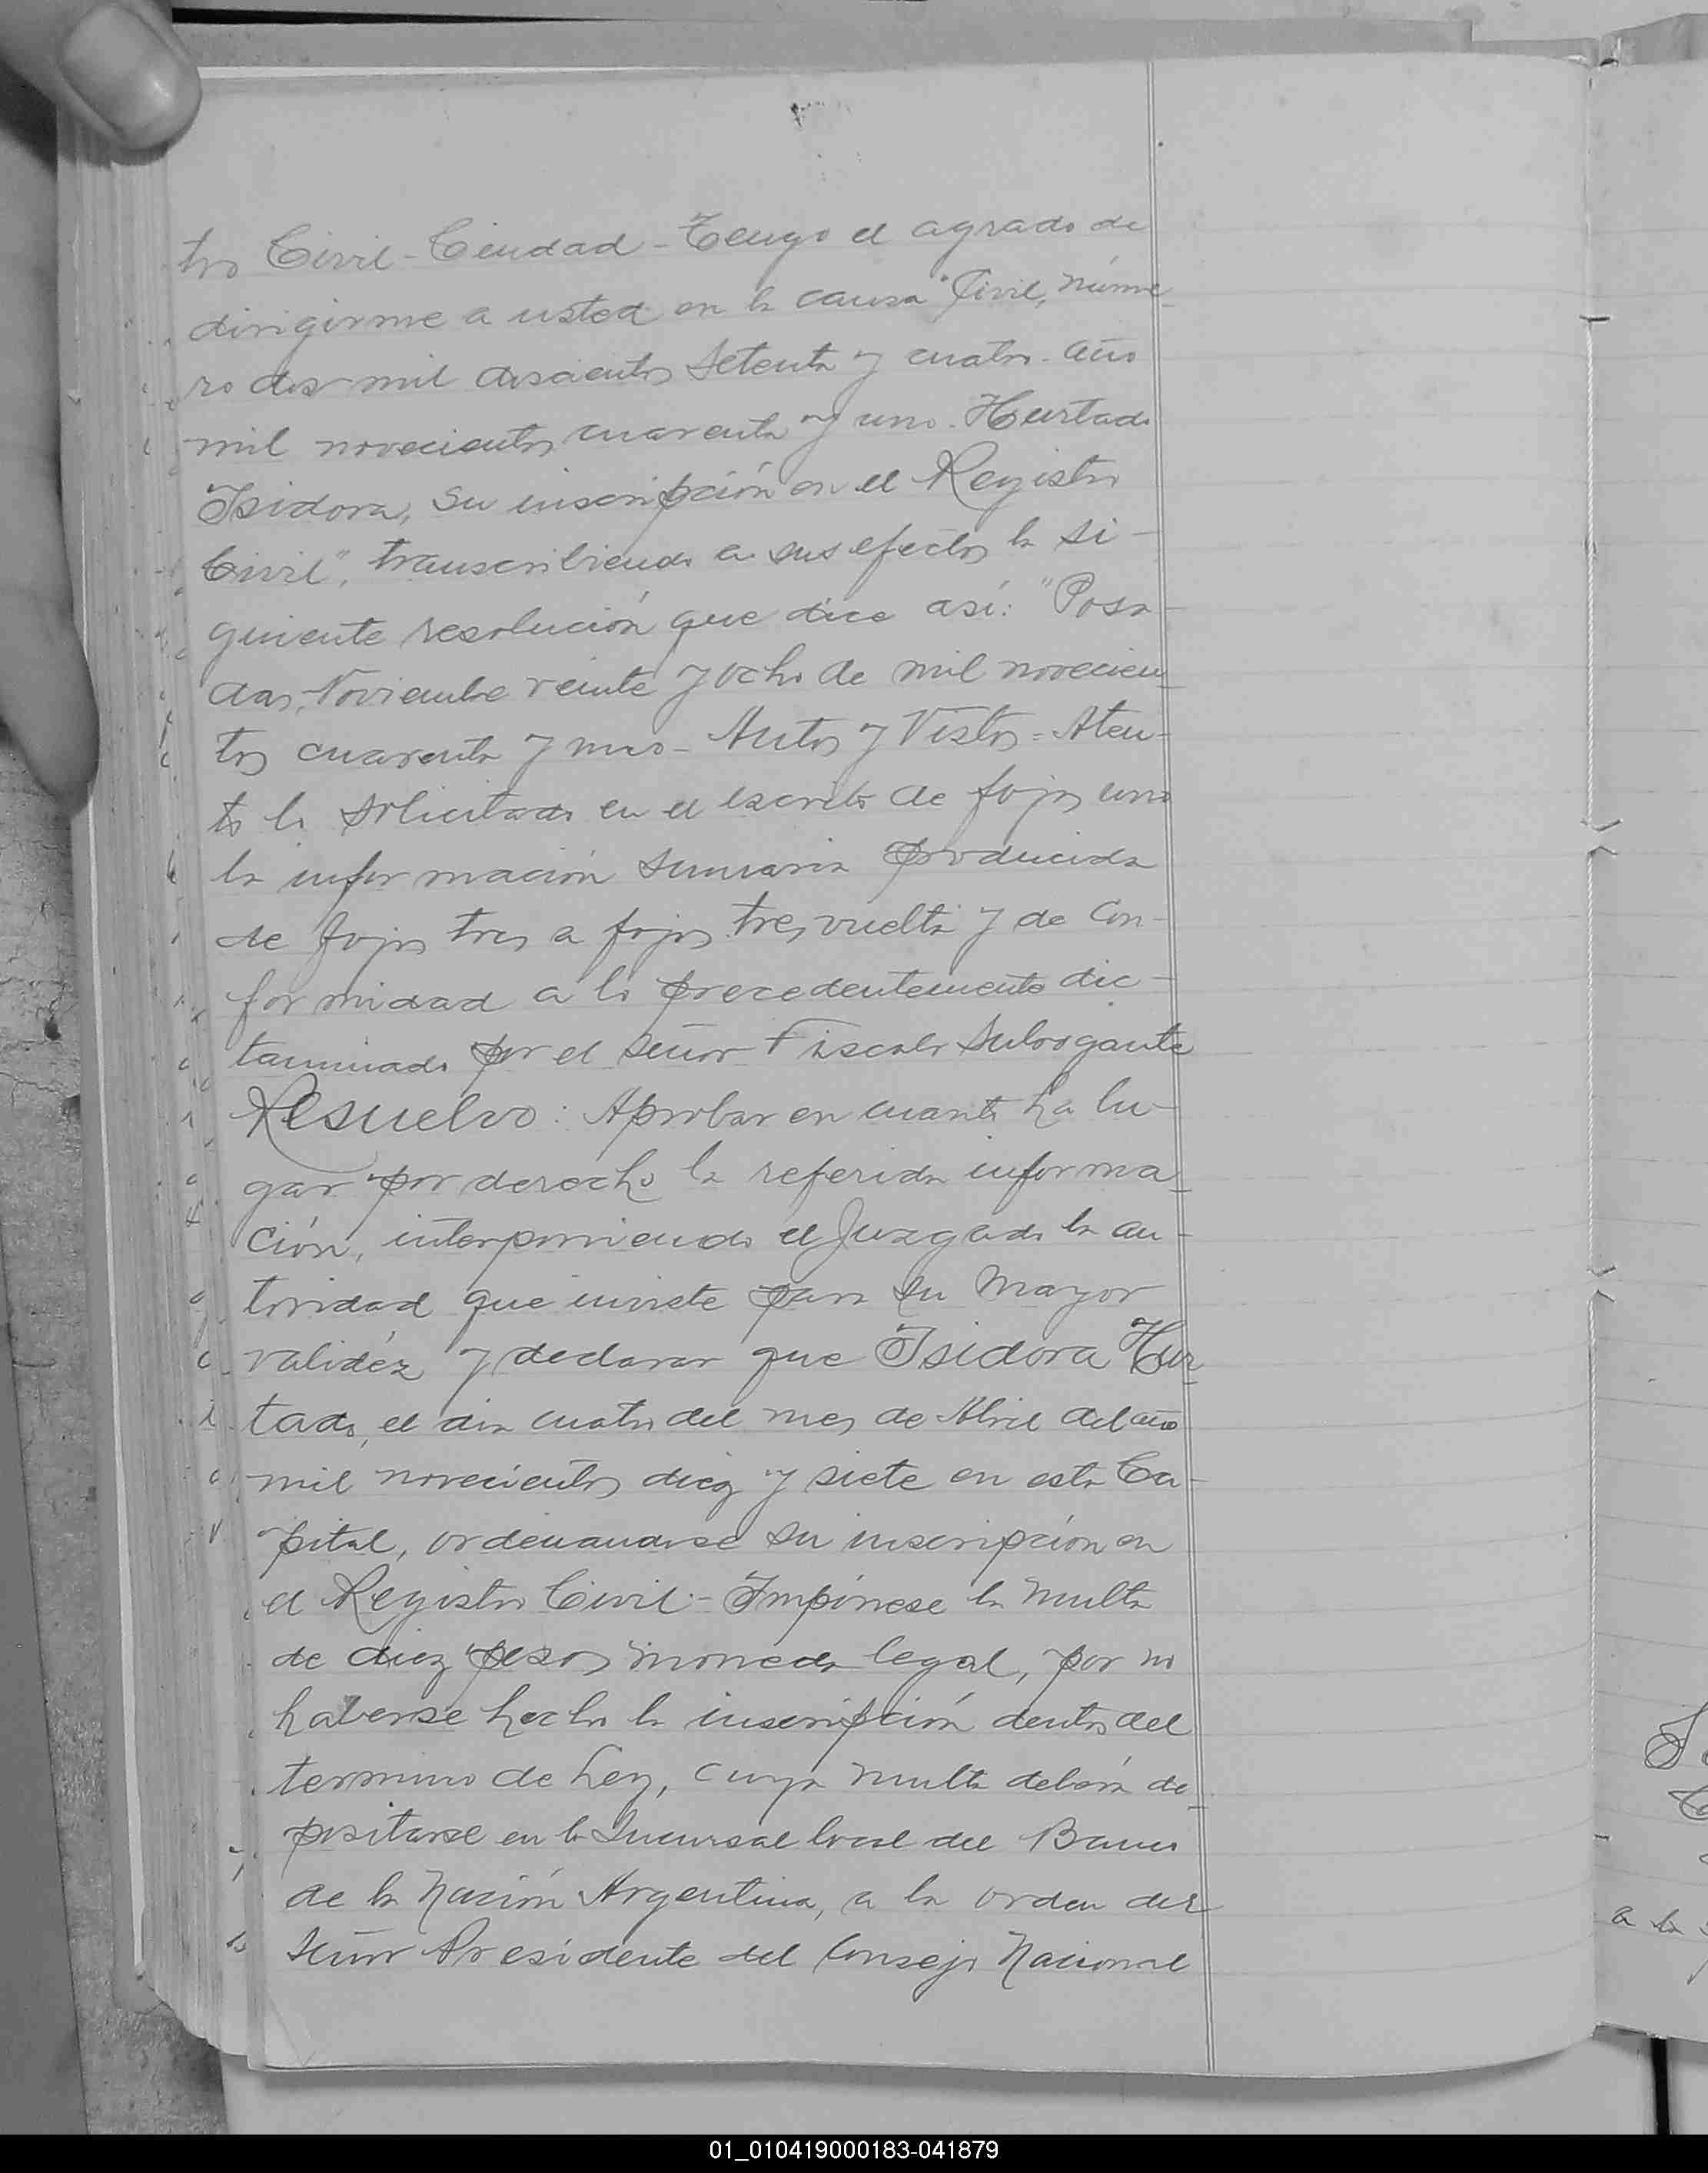 tro Civil - Ciudad - Tengo el agrado de
dirigirme a usted en la causa "Civil, núme-
ro dos mil doscientos setenta y cuatro - año
mil novecientos cuarenta y uno - Hurtado
Isidora, su inscripción en el Registro
Civil", transcribiendo a sus efectos la si-
guiente resolución que dice así: "Posa-
das, Noviembre veinte y ocho de mil novecien-
tos cuarenta y uno - Autos y Vistos = Aten-
to lo solicitado en el escrito de fojas uno
la información sumaria producida
de fojas tres a fojas tres vuelta y de con-
formidad a lo precedentemente dic-
taminado por el señor Fiscal Subrogante
Resuelvo: Aprobar en cuanto ha lu-
gar por derecho la referida informa-
ción, interponiendo el Juzgado la au-
toridad que inviste para su mayor
validéz y declarar que Isidora Hur-
tado, el dia cuatro del mes de Abril del año
mil novecientos diez y siete en esta Ca-
pital, su inscripción en
el Registro Civil - Impónese la multa
de diez pesos moneda legal, por no
haberse hecho la inscripción dentro del
termino de Ley, cuya multa deberá de-
positarse en la Sucursal local del Banco
de la Nación Argentina, a la orden del
Señor Presidente del Consejo Nacional
a la
01_010419000183-041879